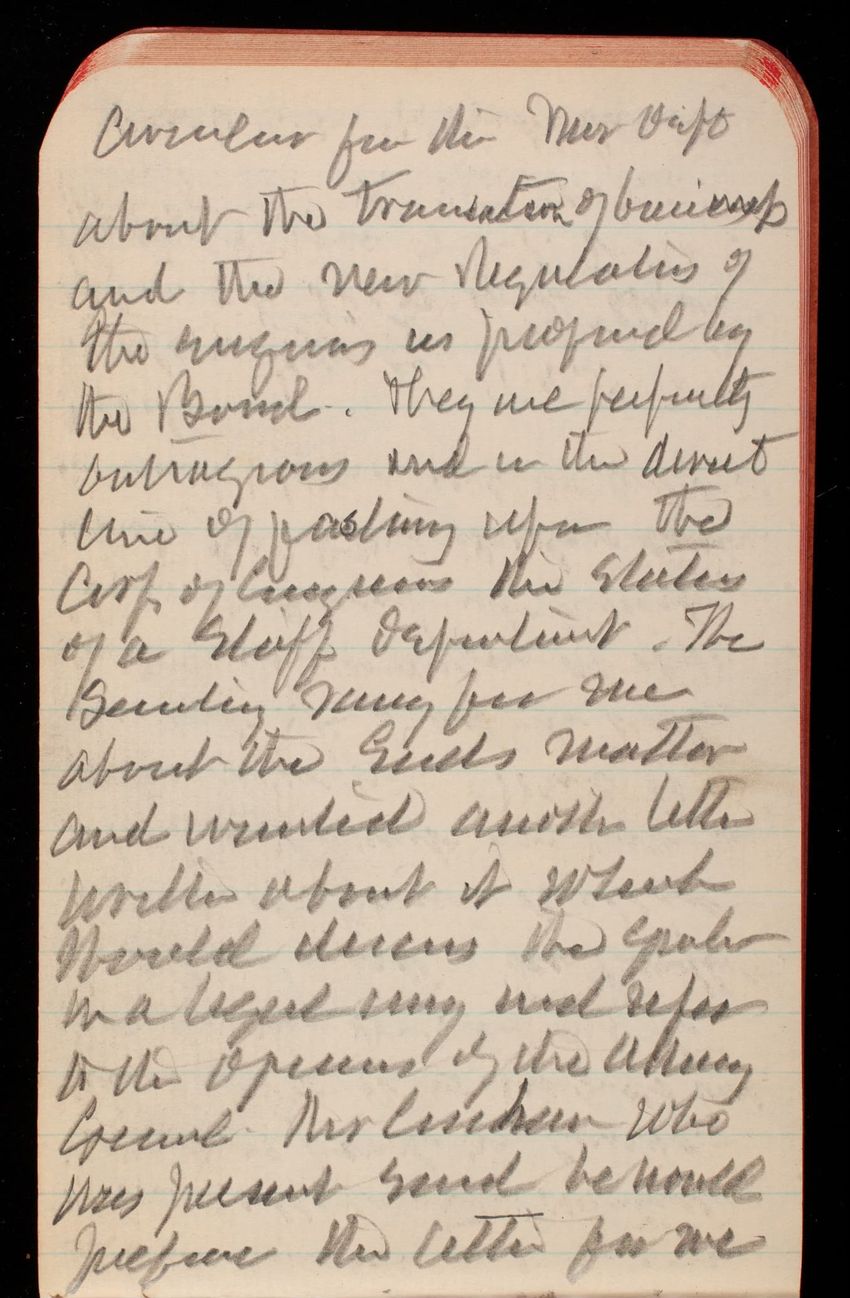 Circular for the War Dept
about the transaction of business
and the new Regulations of
the engineers as prepared by
the Board. They are perfectly
outrageous and in the direct
line of fastening upon the
Corps of Engineers the status
of a Staff Department. The
Secretary rang for me
about the Eads matter
and wanted another letter
written about it which
would discuss the
in a legal way and refer
to the opinions of the Attorney
General. Mr who
was present said he would
prepare the letter for me